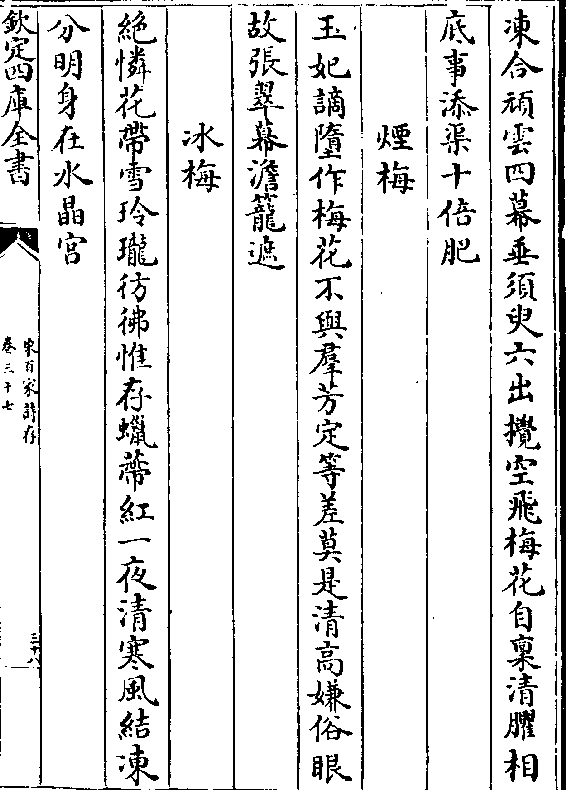 凍合頑雲四幕垂須臾六出攪空飛梅花自稟清臞相
底事添渠十倍肥
煙梅
玉妃謫墮作梅花不與羣芳定等差莫是清高嫌俗眼
故張翠幕澹籠遮
冰梅
絶憐花帶雪玲瓏彷彿惟存蠟蔕紅一夜清寒風結凍
分明身在水晶宮
欽定四庫全書
宋百家詩存
卷三十七
三十八